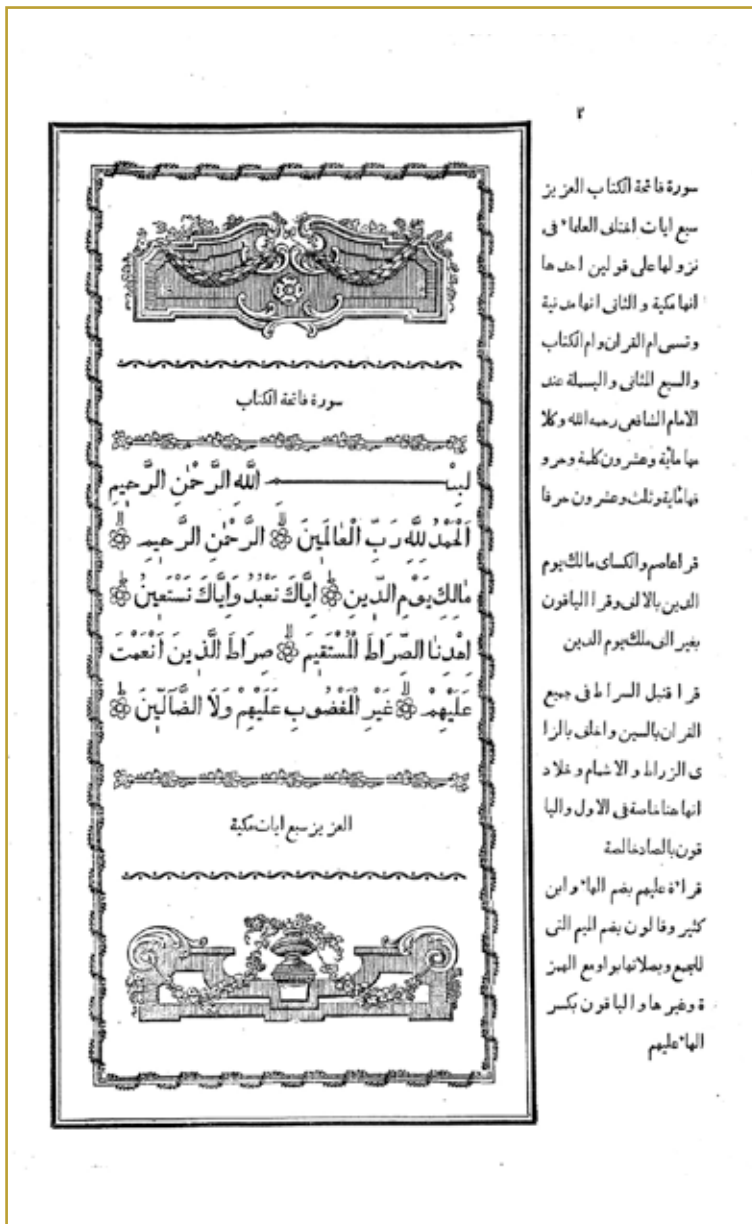 ٢
سورة فاتحة الكتاب العزيز
سبع ايات اختلف العلماء فى
نزولها على قولين احدها
انها مكية والثانى انها مدنية
وتسمى ام القران وام الكتاب
والسبع المثانى والبسملة عند
الامام الشافعى رحمه الله وكلا
مها ماية وعشرون كلمة وحرو
فها ماية وثلث وعشرون حرفا
قرا عاصم والكساى مالك يوم
الدين بالالف وقرا الباقون
بغير الف ملك يوم الدين
قرا قنبل السراط فى جميع
القران بالسين و خلف بالزا
ى الزراط والاشمام وخلاد
انها هنا خاصة فى الاول والبا
قون بالصاد خالصة
قراة عليهم بضم الهاء و ابن
كثير وقالون بضم الميم التى
للجميع وبصلاتها بواو مع الهمز
ة وغيرها والباقون بكسر
الهاء عليهم
سورة فاتحة الكتاب
بِسْمِ اللّٰهِ الرَّحْمٰنِ الرَّحِيمِ
اَلْحَمْدُ لِلّٰهِ رَبِّ الْعَالَمِينَ الرَّحْمٰنِ الرَّحِيمِ
مَالِكِ يَوْمِ الدِّينِ اِيَّاكَ نَعْبُدُ وَاِيَّاكَ نَسْتَعِينُ
اِهْدِنَا الصِّرَاطَ الْمُسْتَقِيمَ صِرَاطَ الَّذِينَ اَنْعَمْتَ
عَلَيْهِمْ غَيْرِ الْمَغْضُوبِ عَلَيْهِمْ وَلَا الضَّالِّينَ
العزيز سبع ايات مكية